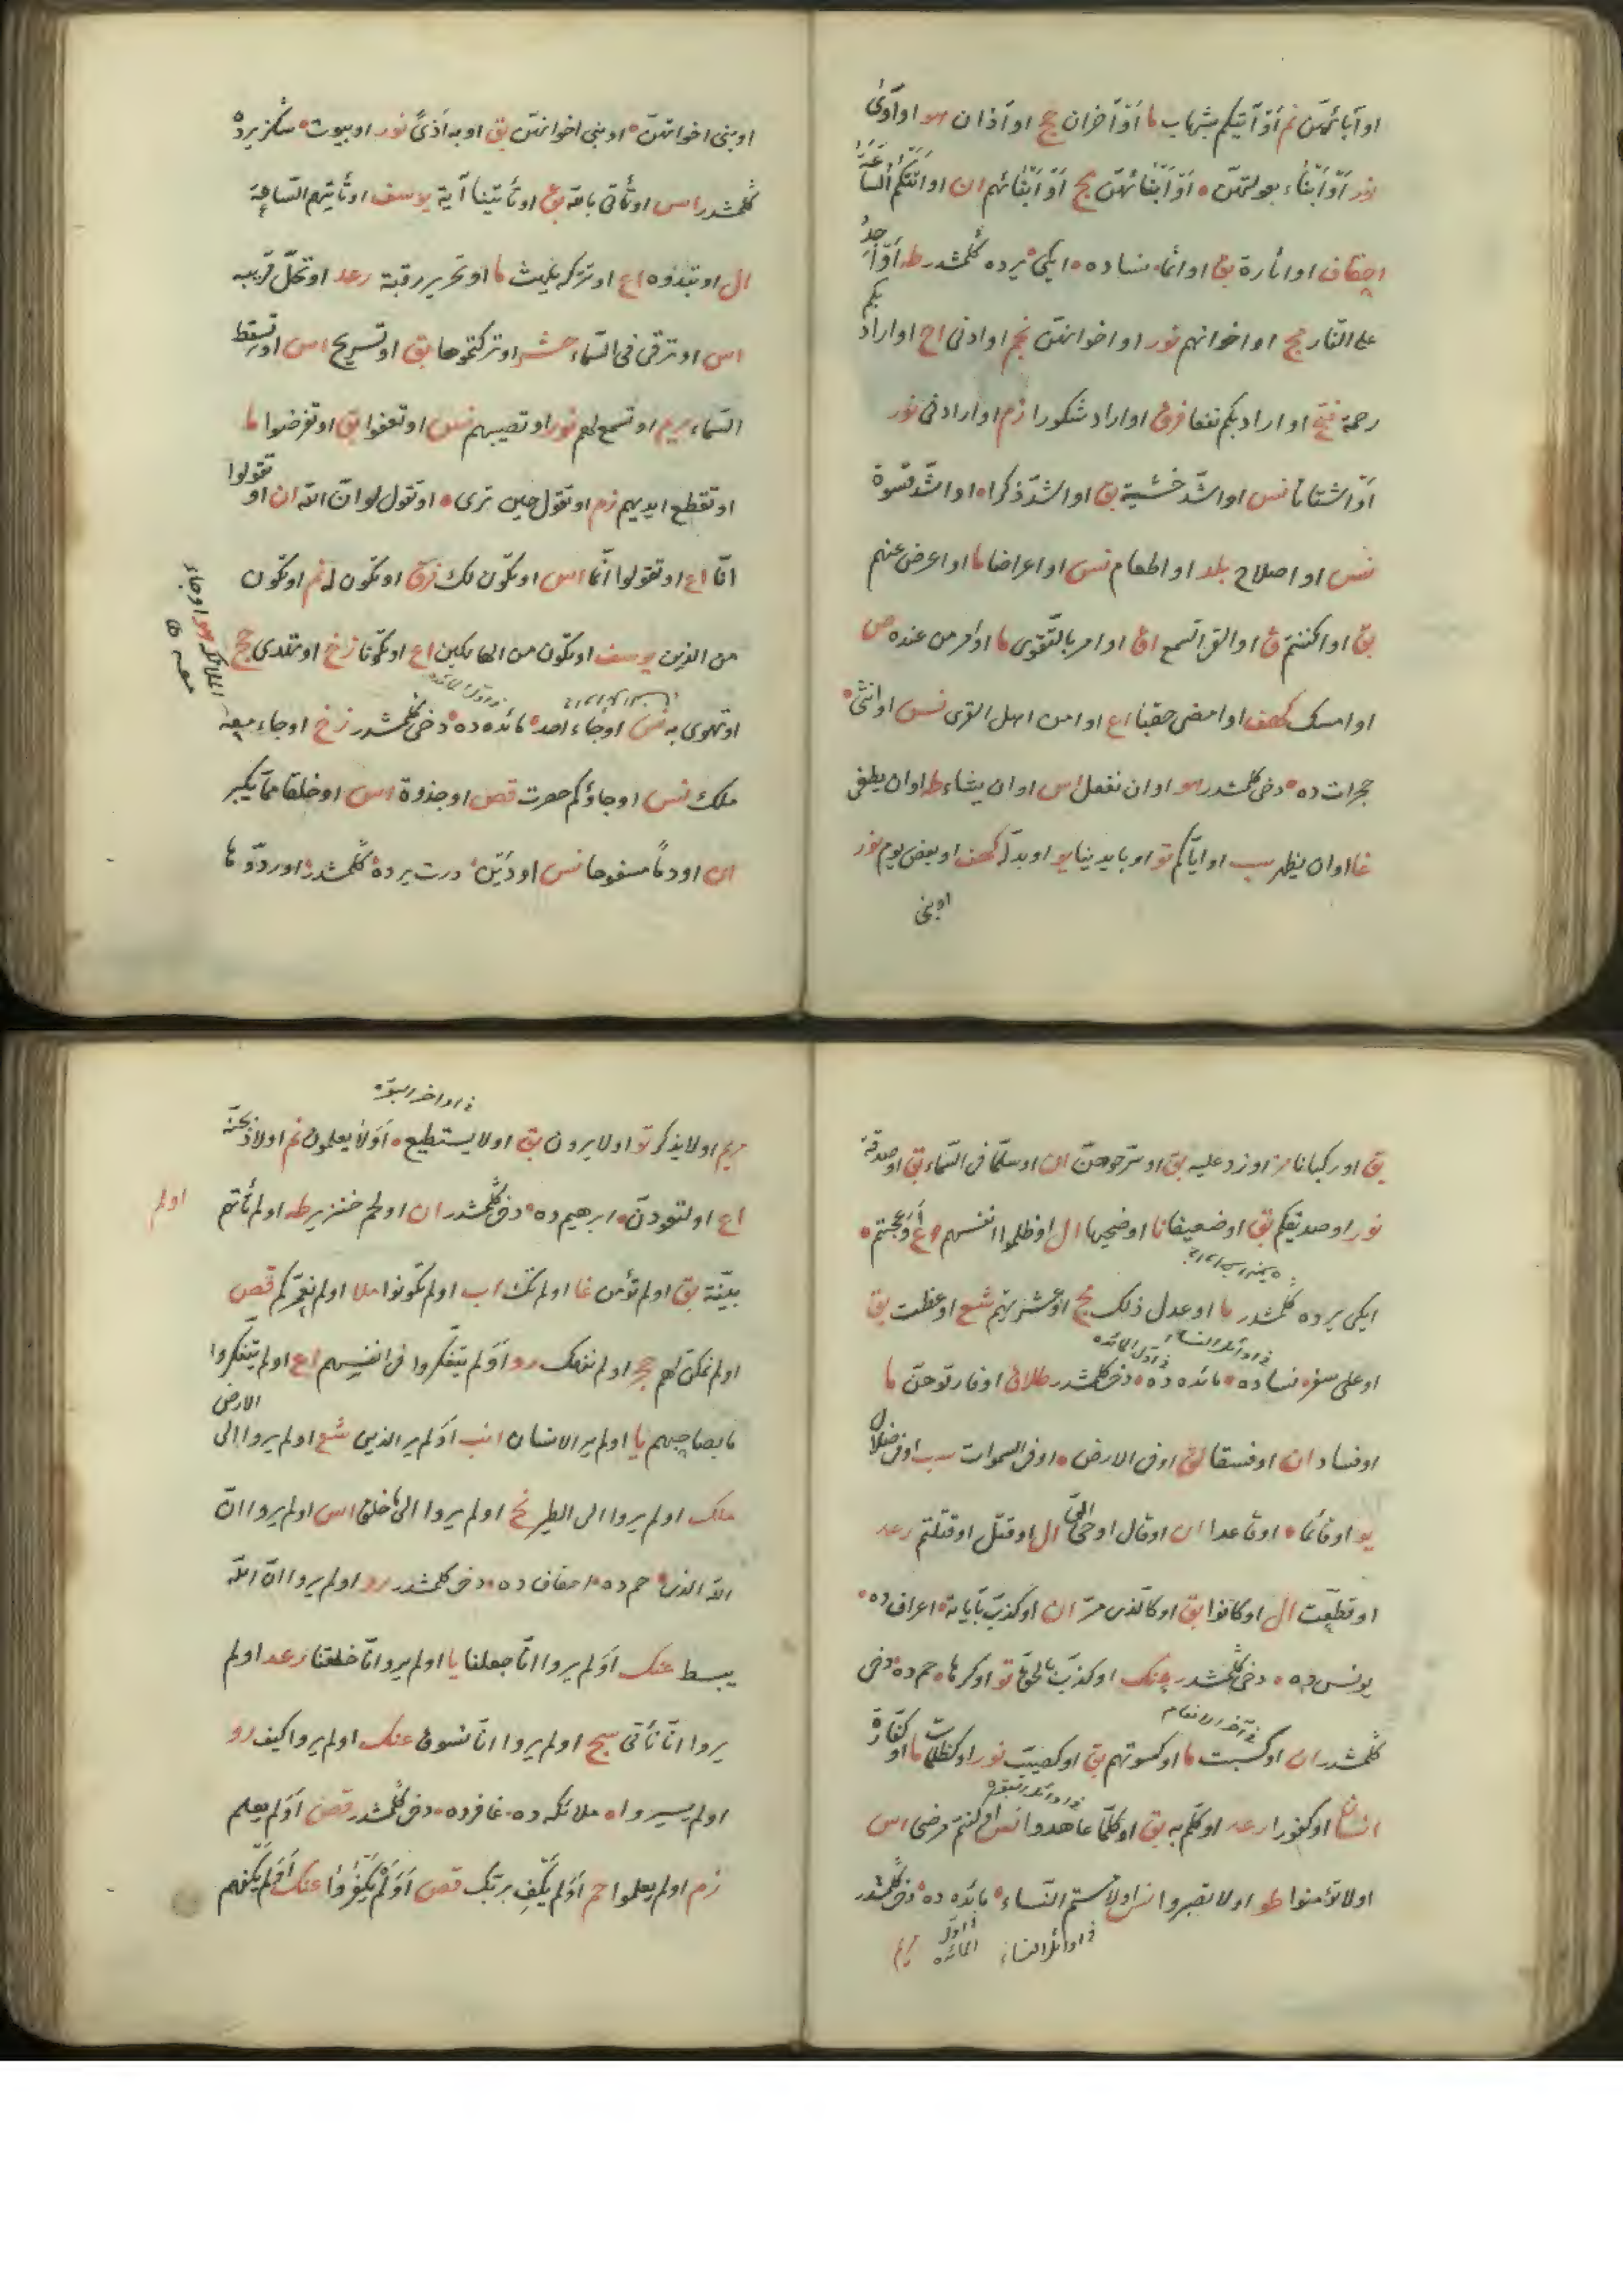 او آبائهن نم او آتيكم بشهاب ما او آخران حج او آذان هو او آوى
نور او ابناء بعولتهن او ابنائهن مج او ابنائهم ان او اتتكم الساعة
احقاف او اثارة بق او اثما نساده ايكى يرده كلمشدر طه او اجد
على النار مج او اخوانهم نور او اخوانهن نجم او ادنى اح او ارادبكم
رحمة فتح او اراد بكم نفعا فرق او اراد شكورا زم او ارادنى نور
او اشتاتا نس او اشد خشية بق او اشد ذكرا او اشد قسوة
نس او اصلاح بلد او اطعام نس او اعراضا ما او اعرض عنهم
بق او اكننتم ق او القى السمع اق او امر بالتقوى ما او امر من عنده ص
او امسك كهف او امضى حقبا اع او امن اهل القرى نس او انثى
حجرات ده دخى كلمشدر هو او ان نفعل اس او ان يشاء طه او ان يطغى
غا او ان يظهر سب او اياكم تو او بايدينا يو او بدله كهف او بعض يوم نور
او بنى
او بنى اخوانهن او بنى اخواتهن بق او به اذى نور او بيوت سكز يرده
كلمشدر اس او تأتى بالله بق او تأتينا آية يوسف او تأتيهم الساعة
ال او تبدوه اع او تتركه يلهث ما او تحرير رقبة رعد او تحل قريبا
اس او ترقى فى السماء حشر او تركتموها بق او تسريح اس او تسقط
السماء مريم او تسمع لهم نور او تصيبهم نس او تعفوا بق او تفرضوا ما
او تقطع ايديهم زم او تقول حين ترى او تقول لو ان الله ان او تقولوا
انا اع او تقولوا انما اس او تكون لك فرق او تكون له نم او تكون
من الذين يوسف او تكون من الهالكين اع او تكونا زخ او تهدى حج
او تهوى به نس او جاء احد مائده ده دخى كلمشدر زخ او جاء معه
الملائكة هو او جاء معه
ملك نس او جاؤكم حصرت قص او جذوة اس او خلقا مما يكبر
ان او دما مسفوحا نس او دين درت يرده كلمشدر او ردوها
بق او ركبانا مز او زد عليه بق او سرحوهن ان او سلما فى السماء بق او صدقة
نور او صديقكم بق او ضعيفا نا او ضحيها ال او ظلموا انفسهم اع او عجبتم
ايكى يرده كلمشدر ما او عدل ذلك مج او عشيرتهم شع او عظت بق
فى اوائل النساء فى اول المائده
او على سفر نساده مائده ده دخى كلمشدر طلاق او فارقوهن ما
او فساد ان او فسقا لق او فى الارض او فى السموات سب او فى ضلال
يو او قائما او قاعدا ان او قال اوحى الى ال او قتل او قتلتم رعد
او قطعت ال او كانوا بق او كالذى مر ان او كذب بآياته اعراف ده
يونس ده دخى كلمشدر عنك او كذب بالحق تو او كرها حم ده دخى
فى آخر الانعام
كلمشدر ان او كسبت ما او كسوتهم بق او كصيب نور او كظلمات ما او كفارة
انسان او كفورا رعد او كلم به بق او كلما عاهدوا نس او كنتم مرضى اس
او لا تؤمنوا طو او لا تصبروا نس او لامستم النساء مائده ده دخى كلمشدر
فى اوائل النساء اول المائده
مريم
فى اواخر البقره
مريم او لا يذكر تو او لا يرون بق او لا يستطيع او لا يعلمون نم او لاذبحنه
اع او لتعودن ابرهيم ده دخى كلمشدر ان او لحم خنزير طه او لم تأتهم
اولم
بينة بق او لم تؤمن غا او لم تك اب او لم تكونوا ملا او لم نعمركم قص
او لم نمكن لهم حجر او لم ننهك رو او لم يتفكروا فى انفسهم اع او لم يتفكروا
ما بصاحبهم يا او لم ير الانسان انب او لم ير الذين شع او لم يروا الى الارض
ملك او لم يروا الى الطير نح او لم يروا الى ما خلق اس او لم يروا ان
الله الذى حم ده احقاف ده دخى كلمشدر رو او لم يروا ان الله
يبسط عنك او لم يروا انا جعلنا يا او لم يروا انا خلقنا رعد او لم
يروا انا نأتى سج او لم يروا انا نسوق عنك او لم يروا كيف رو
او لم يسيروا ملائكه ده غافرده دخى كلمشدر قص او لم يعلم
زم او لم يعلموا حم او لم يكف بربك قص او لم يكفروا عنك او لم يكفهم